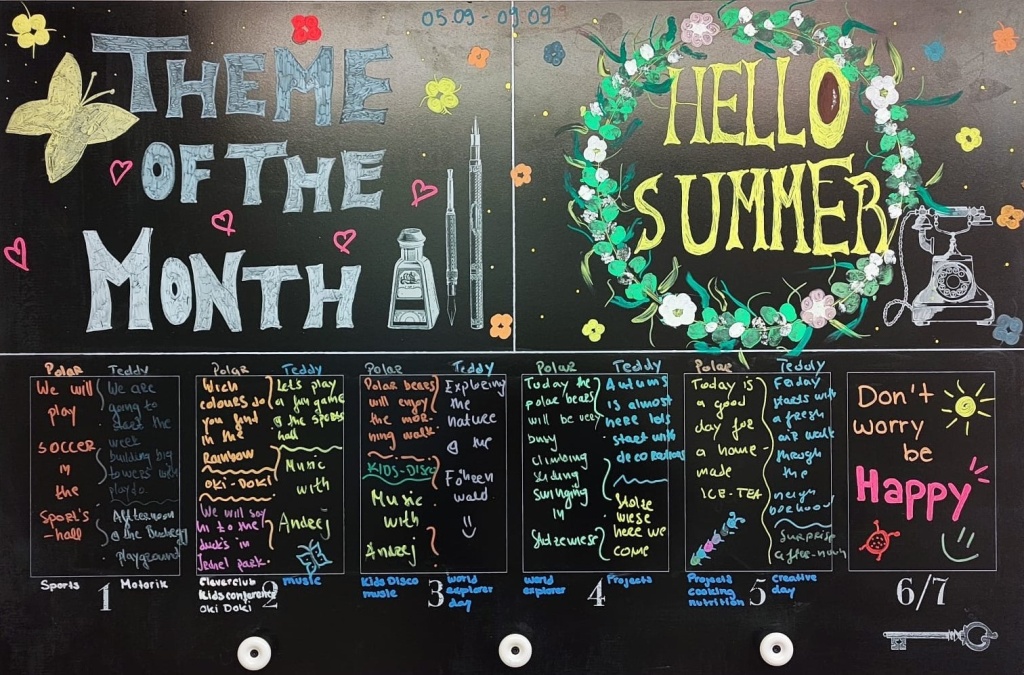 05.09 - 09.09
THEME
OF THE
MONTH
HELLO
SUMMER
Polar
We will
play
soccer
in
the
Sport's
-hall
Teddy
We are
going to
the
week
building big
towers with
playdo.
Afternoon
@ the
playground
Sports
Motorik
1
Polar
Wich
colours do
you find
in the
Rainbow
OKi-DOKi
We will say
hi to the
duck's in
park.
Teddy
Let's play
a fun game
@ the sports
hall
Music
with
Andrej
Cleverclub
Kidsconference
Oki Doki
music
2
Polar
Polar bears
will enjoy
the mor-
ning walk
KIDS-DISCO
Music
with
Andrej
Teddy
Exploring
the
nature
@ the
wald
Kids Disco
music
world
explorer
day
3
Polar
Today the
polar bears
will be very
busy
climbing
sliding
swinging
in
Stolzewiese
Teddy
Autumn
is almost
here lets
start with
decorations
Stolze
wiese
here we
come
world
explorer
Projects
4
Polar
Today is
a good
day for
a home-
made
ICE-TEA
Teddy
Friday
starts with
a fresh
air walk
through
the
neigh
borhood
Surprise
after-noon
Projects
cooking
nutrition
creative
day
5
Don't
worry
be
Happy
6/7